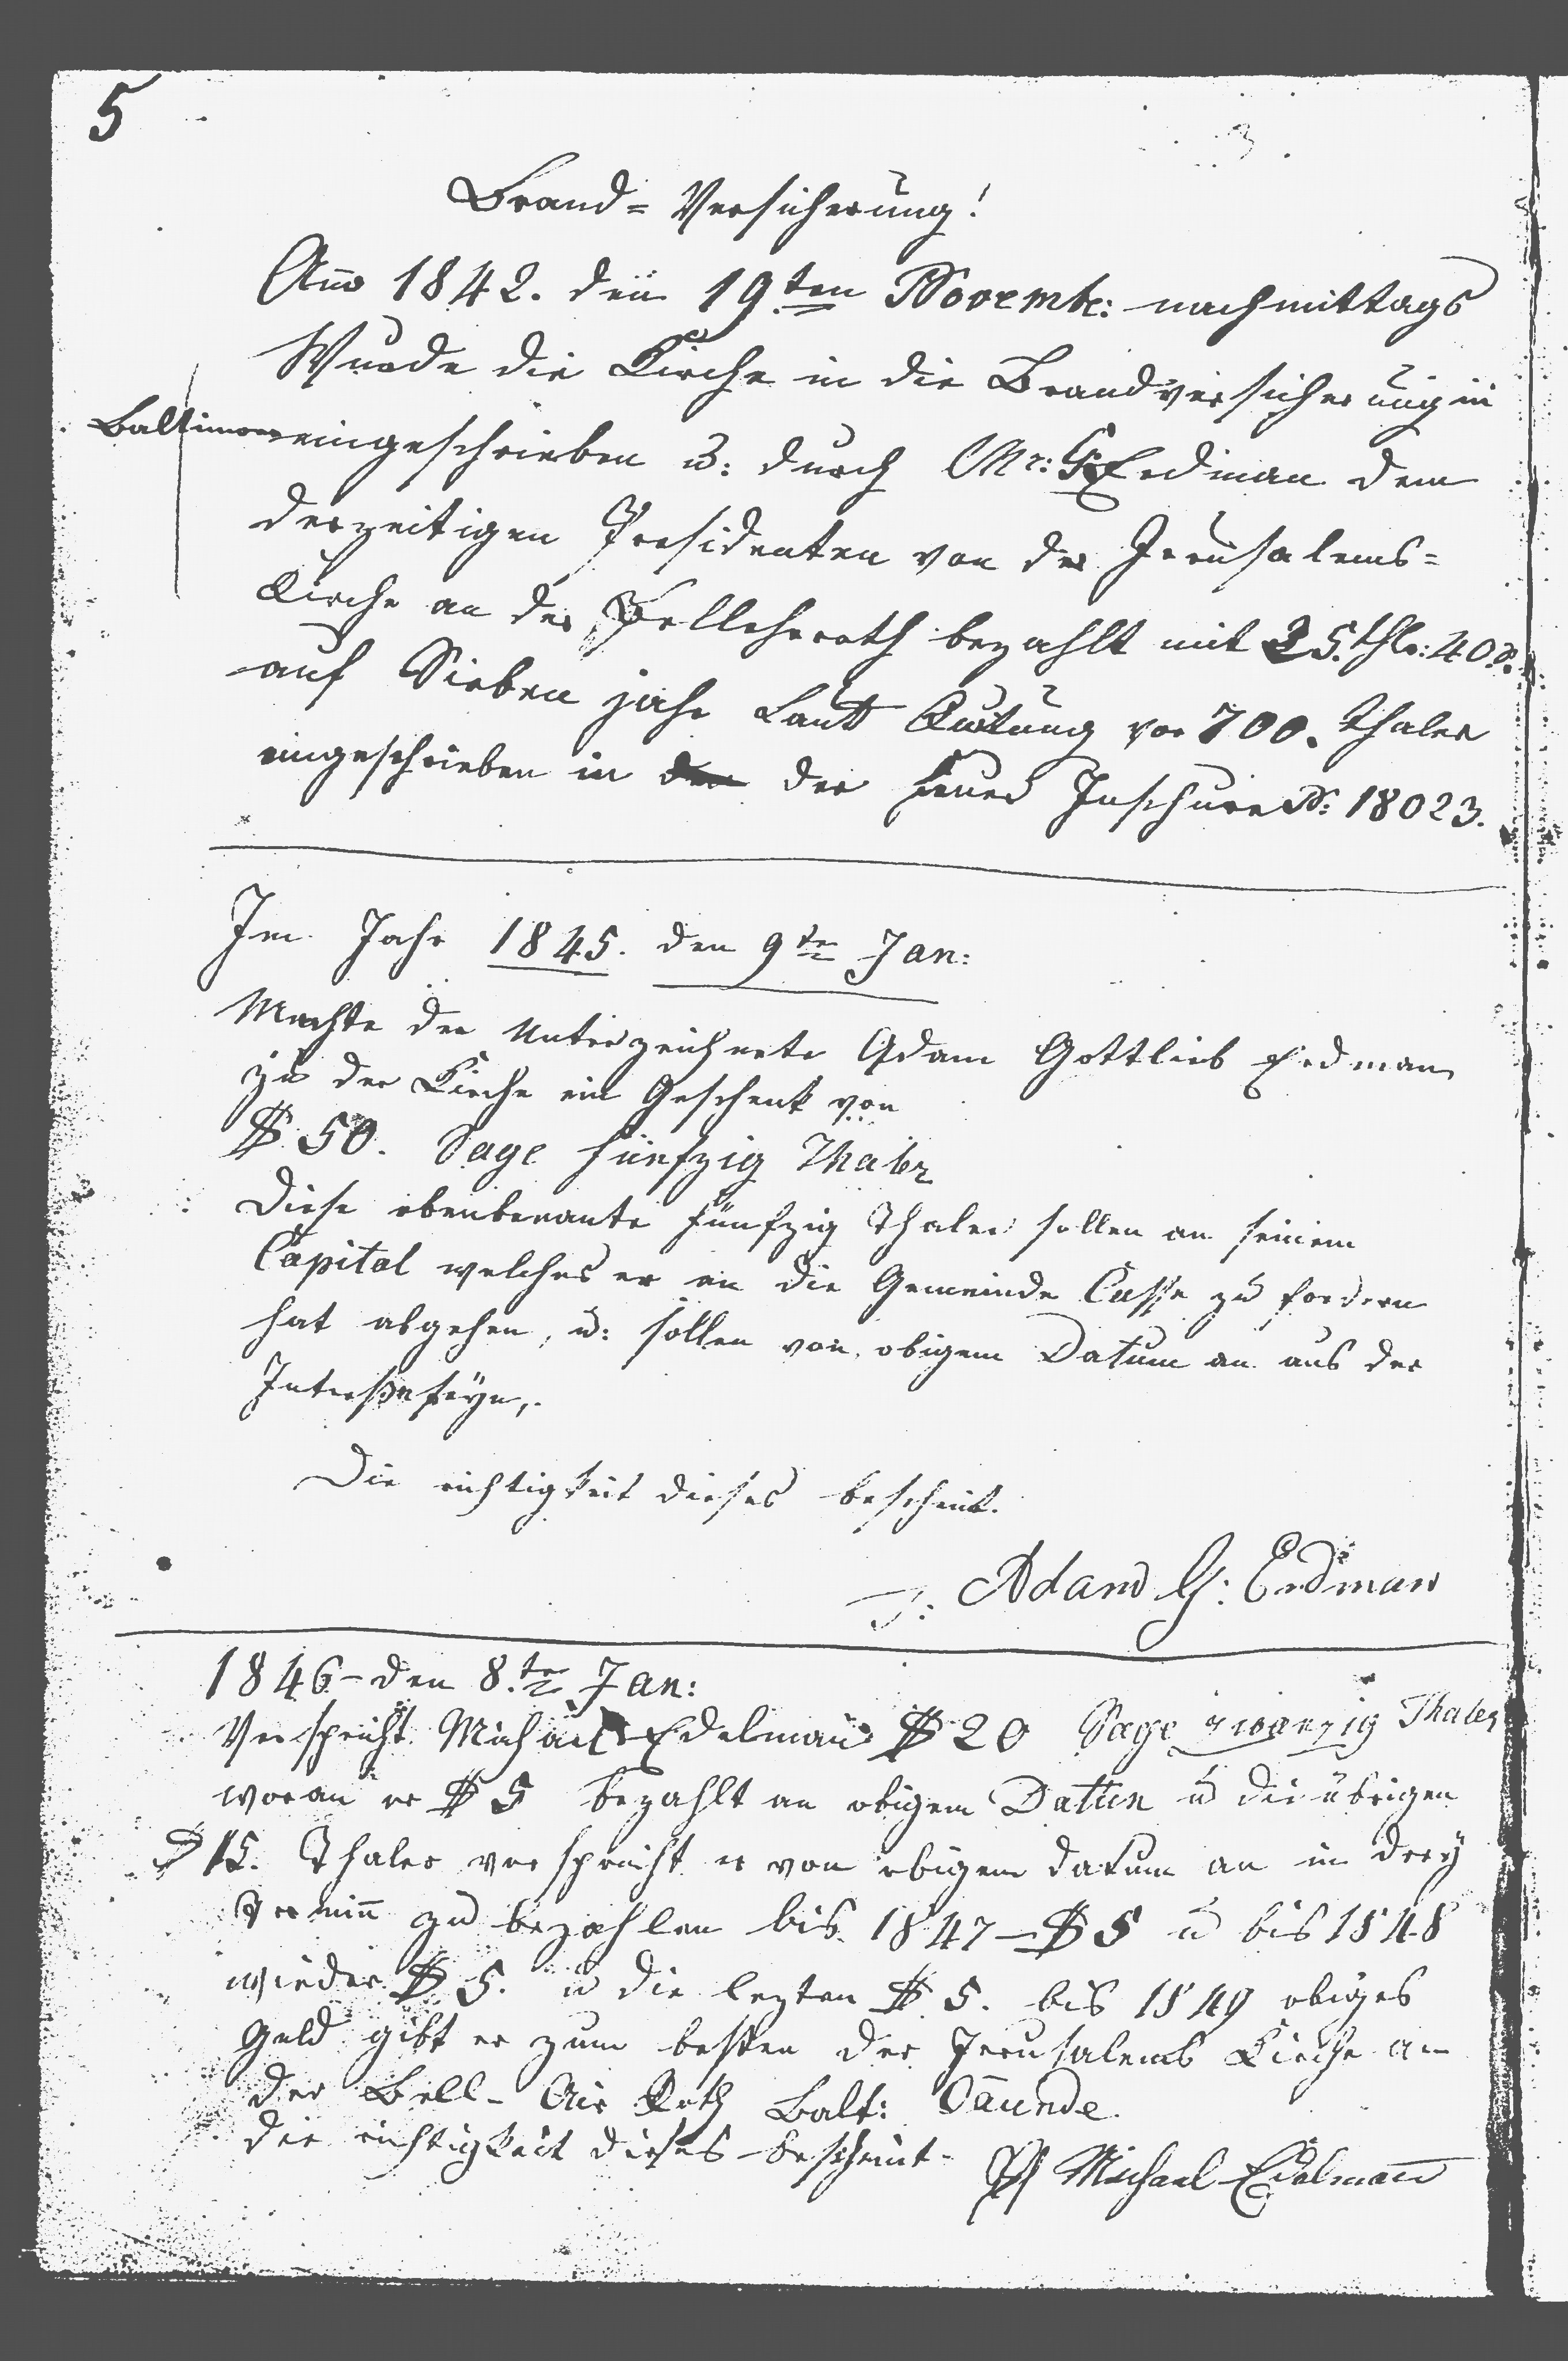 5
Brand=Versicherung!
Ano 1842. den 19ten Novembr: nachmittags
Wurde die Kirche in die Brandversicherung in
Baltimore eingeschrieben u: durch Mr: Erdman dem
derzeitigen Presidenten von der Jerusalems=
Kirche an der bezahlt mit 25. thlr: 40
auf Sieben jahr Lautt Quitung vor 700. thaler
eingeschrieben in der Feuer Inschure No: 18023.
Im Jahr 1845. den 9te Jan:
Machte der Unterzeichnete Adam Gottlieb Erdman
zu der Kirche ein Geschenk von
$ 50. Sage fünfzig Thaler
Diese obenbenante fünfzig Thaler sollen an seinem
Capital welches er an die Gemeinde Casse zu fordern
hat abgehen, u: sollen von obigem Datum an aus der
Interße seyn,.
Die richtigkeit dieses bescheint.
Adam G: Erdman
1846 - den 8.te Jan:
Verspricht Michael Edelman $ 20 Sage zwanzig Thaler
woran er $ 5 bezahlt an obigem Datum u die übrigen
$ 15. Thaler verspricht er von obigem datum an in drey
Termin zu bezahlen bis 1847 - $ 5 u bis 1848
wieder $ 5. u die lezten $ 5. bis 1849 obiges
Geld gibt er zum besten der Jerusalems Kirche an
der Bell-Air Roth Balt: Caunde.
die richtigkeit dieses bescheint - Michael Edelman